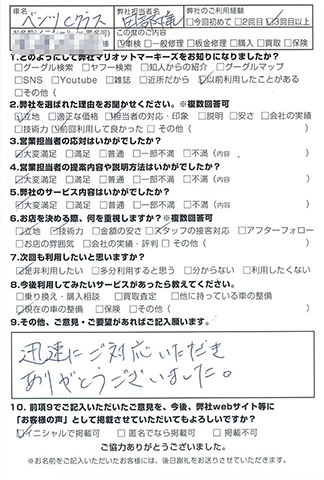 車名 ベンツCクラス
弊社のご利用経験
□今回初めて □2回目 ☑3回目以上
今度のご内容
☑車検 □一般修理 □板金修理 □購入 □買取 □保険
1.どのようにして弊社マリオットマーキーズをお知りになりましたか?
□グーグル検索 □ヤフー検索 □知人からの紹介 □グーグルマップ
□SNS □Youtube □雑誌 □近所だから ☑以前利用したことがある
□その他(　　　)
2.弊社を選ばれた理由をお聞かせください。※複数回答可
☑立地 □適正な価格 □担当者の対応・印象 □説明 □安さ □会社の実績
□技術力 ☑前回利用して良かった □その他(　　　)
3.営業担当者の応対はいかがでしたか?
☑大変満足 □満足 □普通 □一部不満 □不満(内容　　　)
4.営業担当者の提案内容や説明方法はいかがでしたか?
☑大変満足 □満足 □普通 □一部不満 □不満(内容　　　)
5.弊社のサービス内容はいかがでしたか?
☑大変満足 □満足 □普通 □一部不満 □不満(内容　　　)
6.お店を決める際、何を重視しますか?※複数回答可
☑立地 ☑技術力 □金額の安さ ☑スタッフの接客対応 □アフターフォロー
□お店の雰囲気 □会社の実績・評判 □その他(　　　)
7.次回も利用したいと思いますか?
☑是非利用したい □多分利用すると思う □分からない □利用したくない
8.今後利用してみたいサービスがあったら教えてください。
□乗り換え・購入相談 □買取査定 □他に持っている車の整備
☑現在の車の整備 □保険 □その他(　　　)
9.その他、ご意見・ご要望があればご記入願います。
迅速にご対応いただき
ありがとうございました。
10. 前項9でご記入いただいたご意見を、今後、弊社webサイト等に
「お客様の声」として掲載させていただいてもよろしいですか?
☑イニシャルで掲載可 □匿名でなら掲載可 □掲載不可
ご協力ありがとうございました。
※お名前をご記入いただいたお客様には、後日謝礼をお送りさせていただきます。